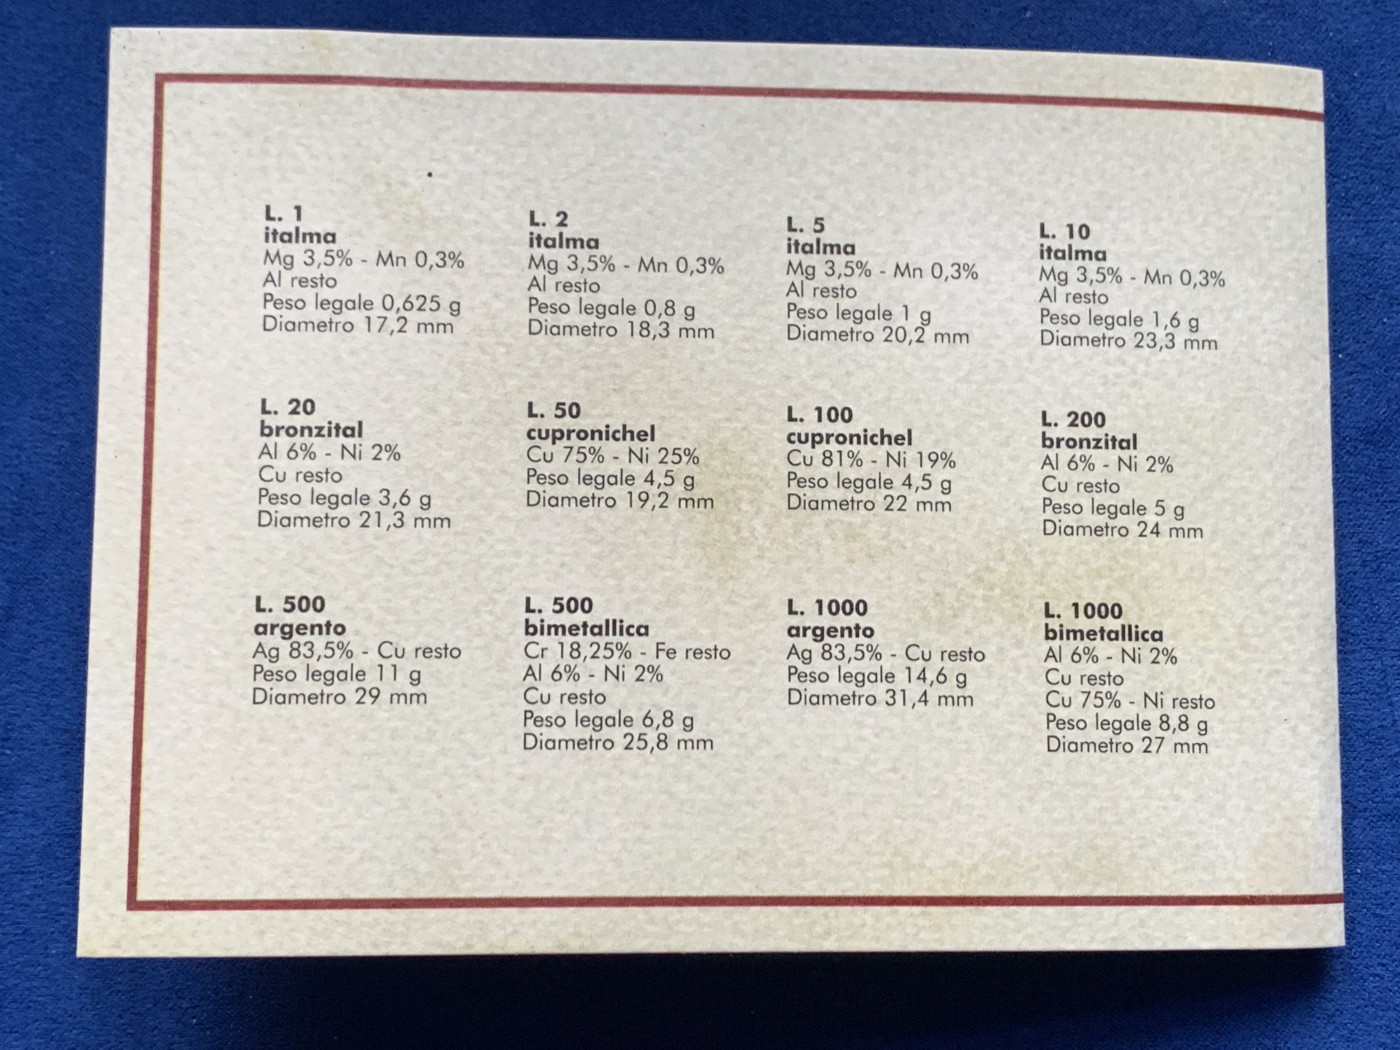 L. 1
italma
Mg 3,5% - Mn 0,3%
Al resto
Peso legale 0,625 g
Diametro 17,2 mm
L. 2
italma
Mg 3,5% - Mn 0,3%
Al resto
Peso legale 0,8 g
Diametro 18,3 mm
L. 5
italma
Mg 3,5% - Mn 0,3%
Al resto
Peso legale 1 g
Diametro 20,2 mm
L. 10
italma
Mg 3,5% - Mn 0,3%
Al resto
Peso legale 1,6 g
Diametro 23,3 mm
L. 20
bronzital
Al 6% - Ni 2%
Cu resto
Peso legale 3,6 g
Diametro 21,3 mm
L. 50
cupronichel
Cu 75% - Ni 25%
Peso legale 4,5 g
Diametro 19,2 mm
L. 100
cupronichel
Cu 81% - Ni 19%
Peso legale 4,5 g
Diametro 22 mm
L. 200
bronzital
Al 6% - Ni 2%
Cu resto
Peso legale 5 g
Diametro 24 mm
L. 500
argento
Ag 83,5% - Cu resto
Peso legale 11 g
Diametro 29 mm
L. 500
bimetallica
Cr 18,25% - Fe resto
Al 6% - Ni 2%
Cu resto
Peso legale 6,8 g
Diametro 25,8 mm
L. 1000
argento
Ag 83,5% - Cu resto
Peso legale 14,6 g
Diametro 31,4 mm
L. 1000
bimetallica
Al 6% - Ni 2%
Cu resto
Cu 75% - Ni resto
Peso legale 8,8 g
Diametro 27 mm